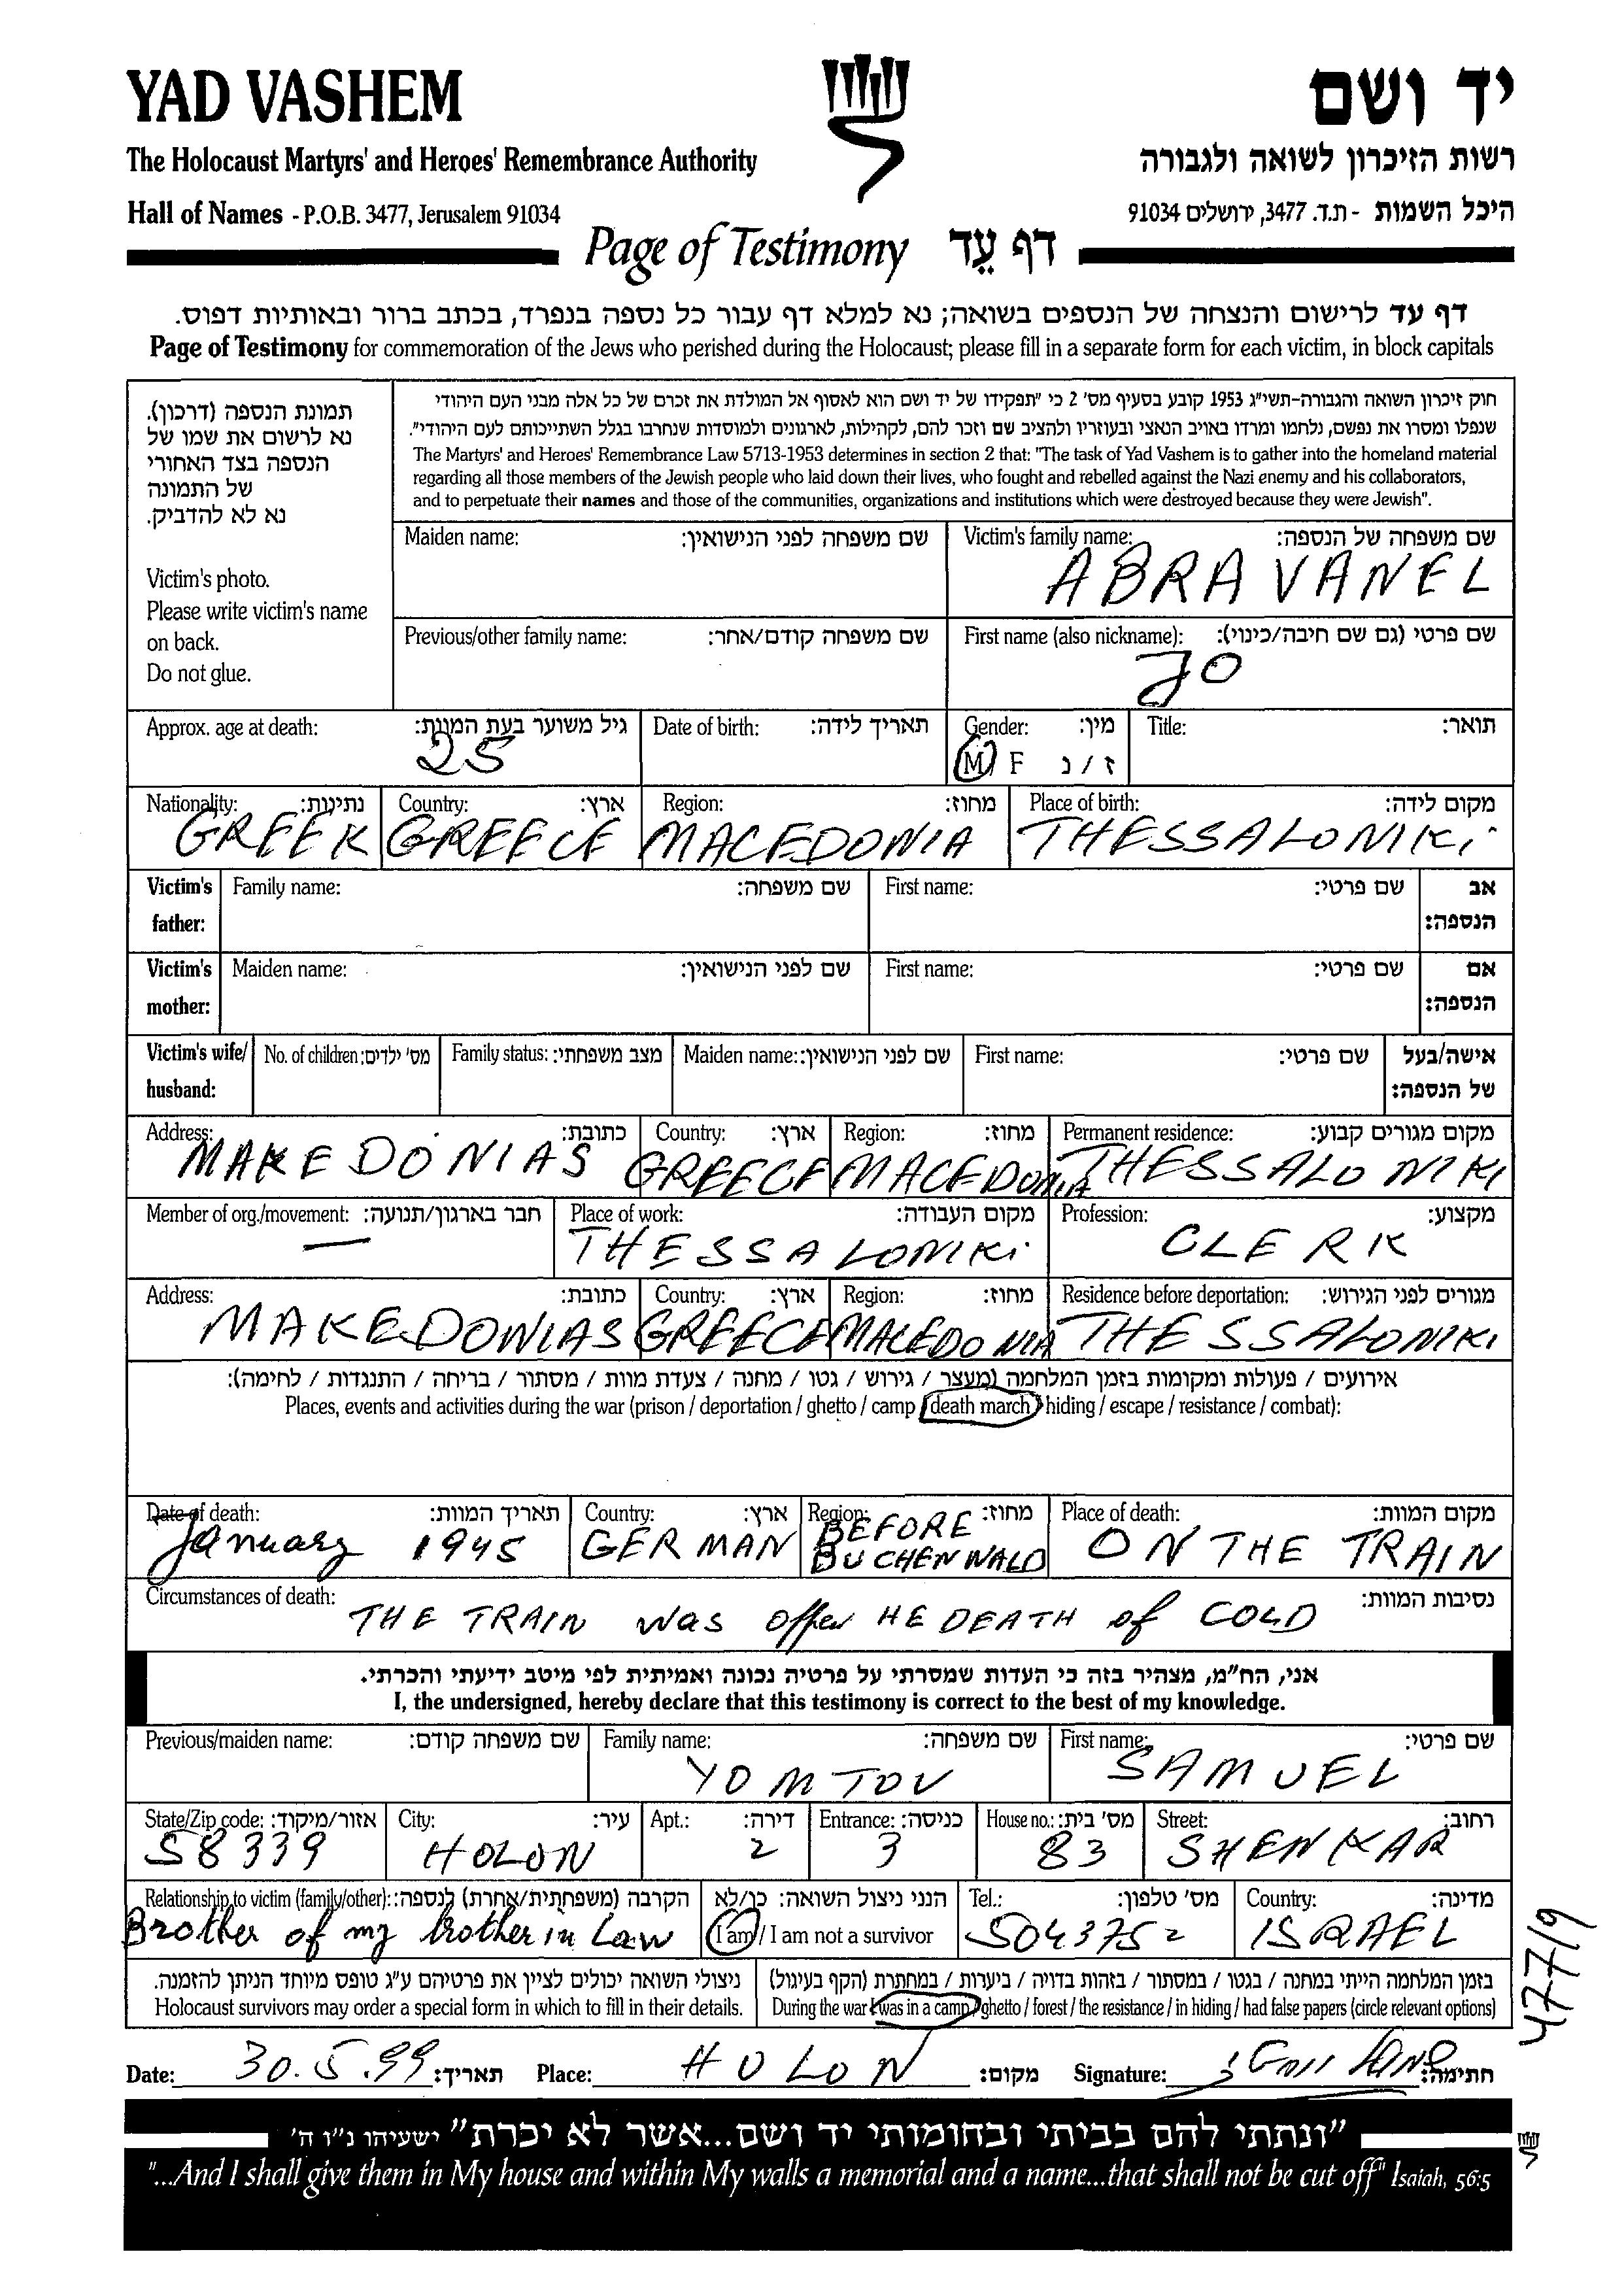 YAD VASHEM
יד ושם
The Holocaust Martyrs' and Heroes' Remembrance Authority
רשות הזיכרון לשואה ולגבורה
Hall of Names - P.O.B. 3477, Jerusalem 91034
היכל השמות - ת.ד. 3477, ירושלים 91034
Page of Testimony דף עֵד
דף עד לרישום והנצחה של הנספים בשואה; נא למלא דף עבור כל נספה בנפרד, בכתב ברור ובאותיות דפוס.
Page of Testimony for commemoration of the Jews who perished during the Holocaust; please fill in a separate form for each victim, in block capitals
תמונת הנספה (דרכון).
נא לרשום את שמו של
הנספה בצד האחורי
של התמונה
נא לא להדביק.
Victim's photo.
Please write victim's name
on back.
Do not glue.
חוק זיכרון השואה והגבורה-תשי"ג 1953 קובע בסעיף מס' 2 כי "תפקידו של יד ושם הוא לאסוף אל המולדת את זכרם של כל אלה מבני העם היהודי
שנפלו ומסרו את נפשם, נלחמו ומרדו באויב הנאצי ובעוזריו ולהציב שם וזכר להם, לקהילות, לארגונים ולמוסדות שנחרבו בגלל השתייכותם לעם היהודי".
The Martyrs' and Heroes' Remembrance Law 5713-1953 determines in section 2 that: "The task of Yad Vashem is to gather into the homeland material
regarding all those members of the Jewish people who laid down their lives, who fought and rebelled against the Nazi enemy and his collaborators,
and to perpetuate their names and those of the communities, organizations and institutions which were destroyed because they were Jewish".
Maiden name: שם משפחה לפני הנישואין:
Victim's family name: שם משפחה של הנספה:
ABRAVANEL
Previous/other family name: שם משפחה קודם/אחר:
First name (also nickname): שם פרטי (גם שם חיבה/כינוי):
JO
Approx. age at death: גיל משוער בעת המוות:
25
Date of birth: תאריך לידה:
Gender: מין:
M F ז / נ
Title: תואר:
Nationality: נתינות:
GREEK
Country: ארץ:
GREECE
Region: מחוז:
MACEDONIA
Place of birth: מקום לידה:
THESSALONIKI
Victim's father:
Family name: שם משפחה:
First name: שם פרטי:
אב הנספה:
Victim's mother:
Maiden name: שם לפני הנישואין:
First name: שם פרטי:
אם הנספה:
Victim's wife/ husband:
No. of children: מס' ילדים:
Family status: מצב משפחתי:
Maiden name: שם לפני הנישואין:
First name: שם פרטי:
אישה/בעל של הנספה:
Address: כתובת:
MAKEDONIAS
Country: ארץ:
GREECE
Region: מחוז:
MACEDONIA
Permanent residence: מקום מגורים קבוע:
THESSALONIKI
Member of org./movement: חבר בארגון/תנועה:
—
Place of work: מקום העבודה:
THESSALONIKI
Profession: מקצוע:
CLERK
Address: כתובת:
MAKEDONIAS
Country: ארץ:
GREECE
Region: מחוז:
MACEDONIA
Residence before deportation: מגורים לפני הגירוש:
THESSALONIKI
אירועים / פעולות ומקומות בזמן המלחמה (מעצר / גירוש / גטו / מחנה / צעדת מוות / מסתור / בריחה / התנגדות / לחימה):
Places, events and activities during the war (prison / deportation / ghetto / camp / death march / hiding / escape / resistance / combat):
Date of death: תאריך המוות:
January 1945
Country: ארץ:
GERMAN
Region: מחוז:
BEFORE
BUCHENWALD
Place of death: מקום המוות:
ON THE TRAIN
Circumstances of death: נסיבות המוות:
THE TRAIN was offen HE DEATH of COLD
אני, הח"מ, מצהיר בזה כי העדות שמסרתי על פרטיה נכונה ואמיתית לפי מיטב ידיעתי והכרתי.
I, the undersigned, hereby declare that this testimony is correct to the best of my knowledge.
Previous/maiden name: שם משפחה קודם:
Family name: שם משפחה:
YOMTOV
First name: שם פרטי:
SAMUEL
State/Zip code: אזור/מיקוד:
58339
City: עיר:
HOLON
Apt.: דירה:
2
Entrance: כניסה:
3
House no.: מס' בית:
83
Street: רחוב:
SHENKAR
Relationship to victim (family/other): הקרבה (משפחתית/אחרת) לנספה:
Brother of my brother in Law
הנני ניצול השואה: כן/לא
I am / I am not a survivor
Tel.: מס' טלפון:
5043752
Country: מדינה:
ISRAEL
ניצולי השואה יכולים לציין את פרטיהם ע"ג טופס מיוחד הניתן להזמנה.
Holocaust survivors may order a special form in which to fill in their details.
בזמן המלחמה הייתי במחנה / בגטו / במסתור / בזהות בדויה / ביערות / במחתרת (הקף בעיגול)
During the war I was in a camp / ghetto / forest / the resistance / in hiding / had false papers (circle relevant options)
477/9
Date: 30.5.99 תאריך: Place: HOLON מקום: Signature: חתימה:
"ונתתי להם בביתי ובחומותי יד ושם...אשר לא יכרת" ישעיהו נ"ו ה'
"...And I shall give them in My house and within My walls a memorial and a name...that shall not be cut off" Isaiah, 56:5